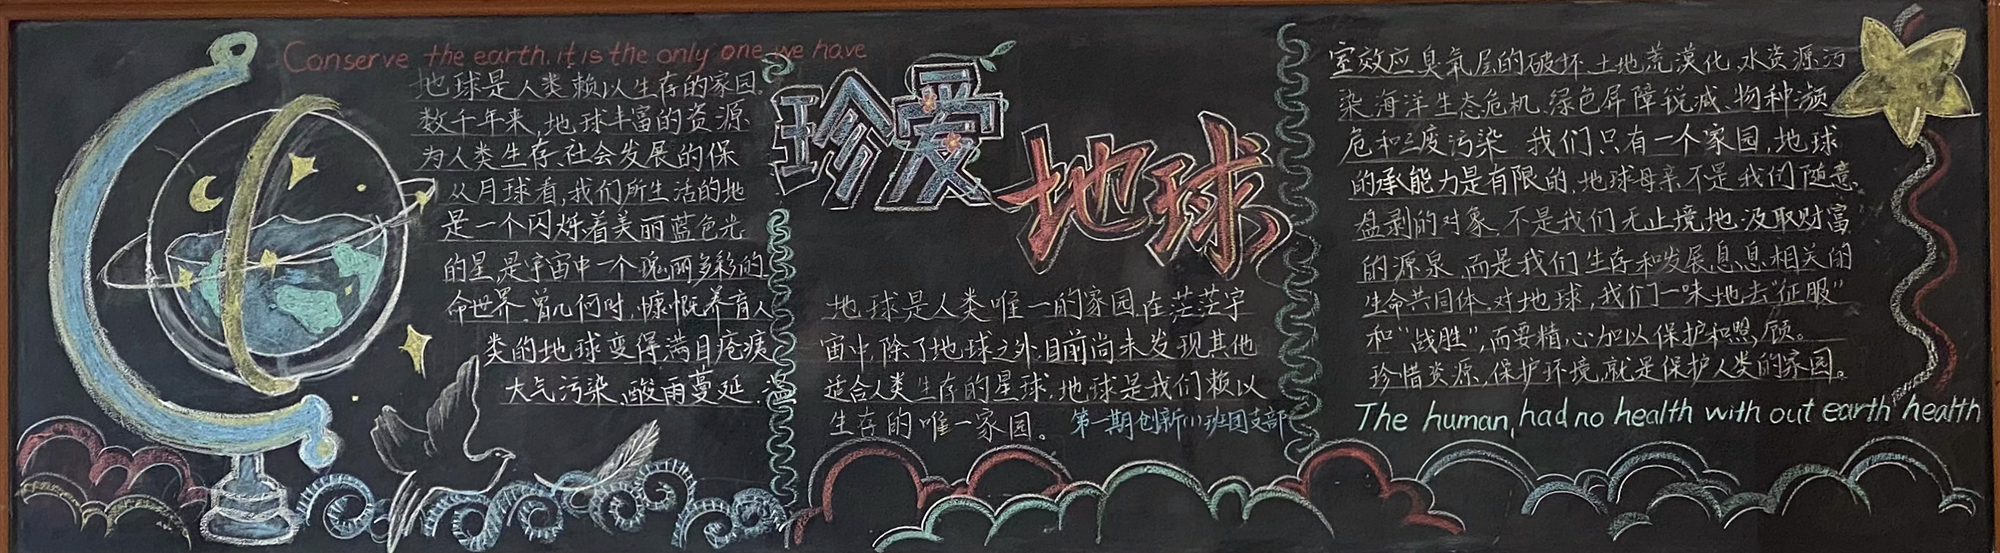 Conserve the earth, it is the only one we have
地球是人类赖以生存的家园。
数千年来,地球丰富的资源
为人类生存、社会发展的保
从月球看,我们所生活的地
是一个闪烁着美丽蓝色光
的星,是宇宙中一个瑰丽多彩的
命世界。曾几何时,慷慨养育人
类的地球变得满目疮痍
大气污染、酸雨蔓延、温
珍爱
地球
地球是人类唯一的家园,在茫茫宇
宙中,除了地球之外,目前尚未发现其他
适合人类生存的星球。地球是我们赖以
生存的唯一家园。
第一期创新(1)班团支部
室效应臭氧层的破坏、土地荒漠化、水资源污
染、海洋生态危机、绿色屏障锐减、物种濒
危和三废污染 我们只有一个家园,地球
的承能力是有限的,地球母亲不是我们随意
盘剥的对象,不是我们无止境地汲取财富
的源泉,而是我们生存和发展息息相关的
生命共同体。对地球,我们一味地去“征服”
和“战胜”,而要精心加以保护和照顾。
珍惜资源,保护环境,就是保护人类的家园。
The human, had no health with out earth health